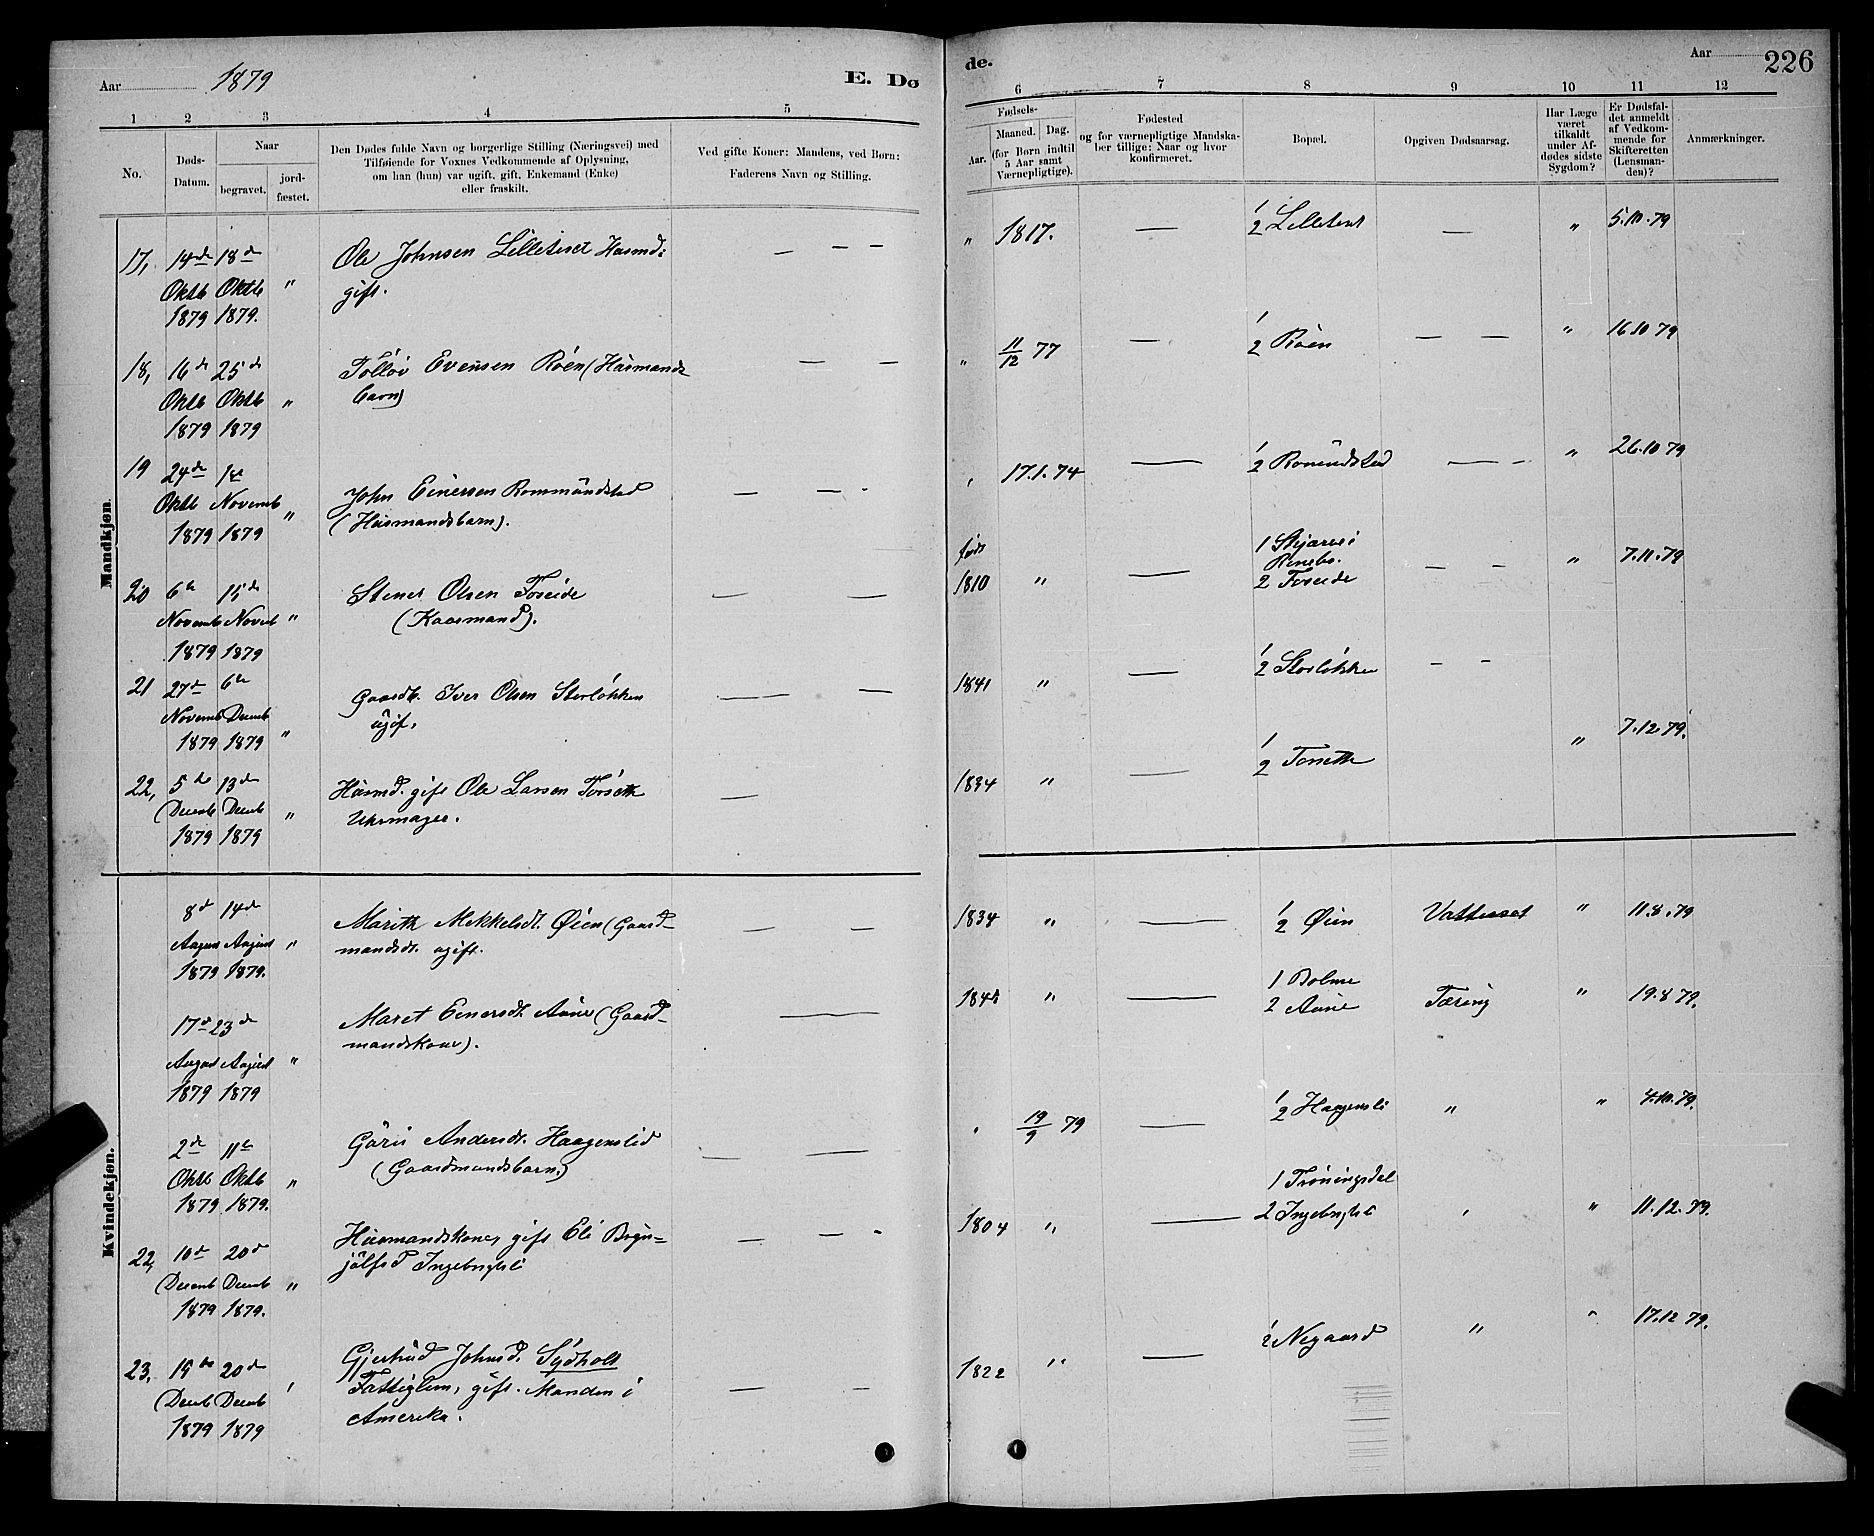 Aar 1879
E. Dø
de.
Aar 226
1 2 3 4 5
6 7 8 9 10 11 12
No.
Døds-
Datum.
Naar
begravet.
jord-
fæstet.
Den Dødes fulde Navn og borgerlige Stilling (Næringsvei) med
Tilføiende for Voxnes Vedkommende af Oplysning,
om han (hun) var ugift, gift, Enkemand (Enke)
eller fraskilt.
Ved gifte Koner: Mandens, ved Børn:
Faderens Navn og Stilling.
Fødsels-
Aar.
Maaned. Dag.
(for Børn indtil
5 Aar samt
Værnepligtige).
Fødested
og for værnepligtige Mandska-
ber tillige: Naar og hvor
konfirmeret.
Bopæl.
Opgiven Dødsaarsag.
Har Læge
været
tilkaldt
under Af-
dødes sidste
Sygdom?
Er Dødsfal-
det anmeldt
af Vedkom-
mende for
Skifteretten
(Lensman-
den)?
Anmærkninger.
Mandkjøn.
17, 14de 18de Ole Johnsen Lilletiset Husmd: — — —
Oktb Oktb " gift.
1879 1879.
" 1817. — 1/2 Lilletiset — " 5.10.79
18, 16de 25de Tolløv Evensen Röen (Husmands — —
Oktb Oktb " barn)
1879 1879
" 11/12 77 — 1/2 Röen — — " 16 10 79
19 24de 1ste
Oktb Novemb " John Einersen Rommundstad — — -
1879 1879 (Husmandsbarn).
17.1.74 — 1/2 Romundstad — " 26.10 79
20 6te 15de Stener Olsen Foseide — —
Novemb Novemb " (Kaarmand).
1879 1879
født
1810 " — 1 Skjærsei
Reneb.
2 Foseide — — " 7.11.79
21 27de 6te Gaardb. Iver Olsen Storløkken — —
Novemb Decemb ugif.
1879 1879 "
1841 " — 1/2 Storløkken — —
22, 5te 13de Husmd. gift Ole Larsen Torseth —
Decemb Decemb " Uhrmager.
1879 1879
1834 " — 1/2 Torseth " 7.12.79.
Kvindekjøn.
8de 14de Marith Mikkelsdt. Øien (Gaard- — —
August August " mandsdt. ugift.
1879 1879.
1834 " — 1/2 Øien " 11.8.79
17de 23de Maret Einersdt. Aune (Gaard- —
August August " mandskone).
1879 1879
" — 1 Bolme
2 Aune Tæring " 19.8 79.
2de 11te Guru Andersdt. Haagenslid — —
Oktb Oktb " (Gaardmandsbarn.)
1879 1879.
19/9 79 — 1/2 Haagensli " " 4.10.79.
22, 10de 20de Husmandskone, gift Eli Bryn- — — -
Decemb Decemb " jülfsd Ingebrigtsli
1879 1879.
1804 " — 1 Trøningsdal
2 Ingebrigtsli " 11.12.79.
23, 15de 20de Gjertrud Johnsd. Sydhalt — —
Decemb Decemb ' Fattiglem, gift. Manden i
1879 1879 Amerika.
1822 " — 1/2 Negaard " " 17.12 79.